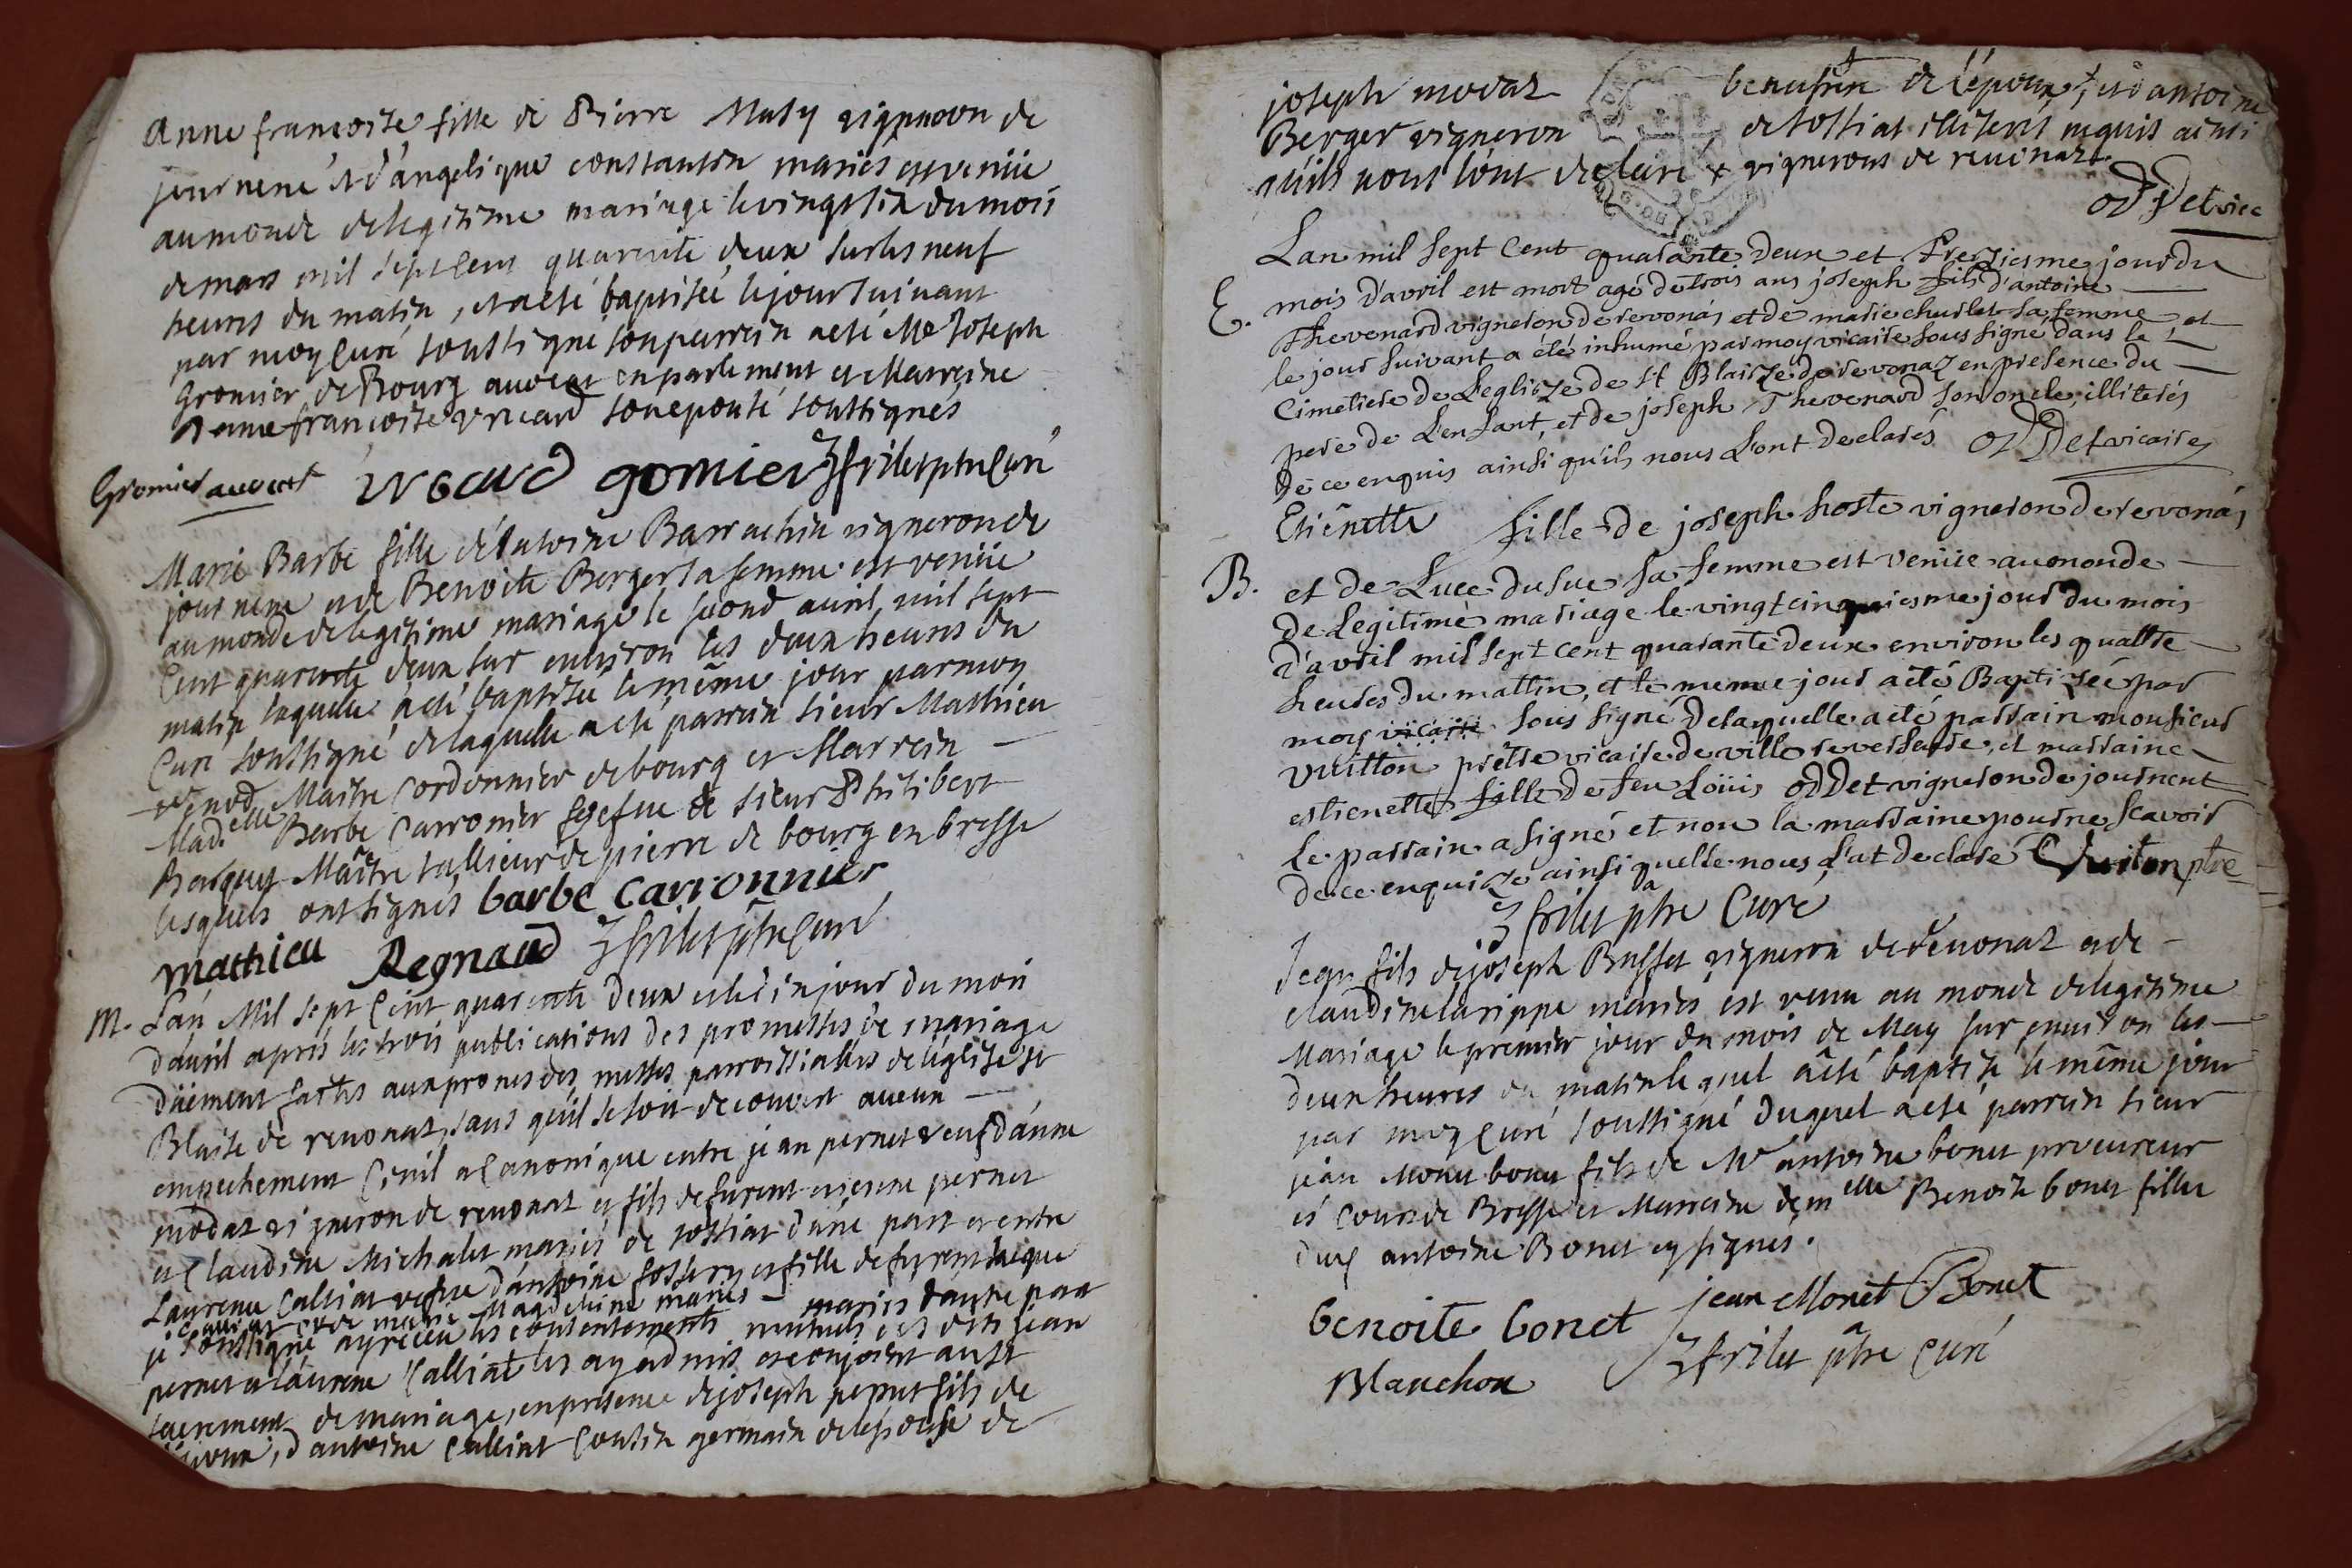 Anne francoise fille de Pierre Masy vigneron de
journené et d'angelique constantin mariés est venüe
au monde de legitime mariage le vingt six du mois
de mars mil sept cent quarente deux sur les neuf
heures du matin, et a eté baptisée le jour suivant
par moy curé soussigné son parrain a eté Me Joseph
Gromier de Bourg avocat en parlement et Marreine
Anne françoise son epouse soussignés
Gromier avocat gomier J frilet ptre curé
Marie Barbe fille d'Antoine Barrachin vigneron de
journené et de Benoite Berger sa femme est venüe
au monde de legitime mariage le second avril mil sept
cent quarente deux sur environ les deux heures du
matin laquelle a eté baptisée le même jour par moy
curé soussigné de laquelle a eté parrein sieur Mathieu
Maitre cordonnier de bourg et Marrein
Mad.elle Barbe Carronier de sieur Philibert
Barquet Maitre tallieur de pierre de bourg en bresse
lesquels ont signés barbe Carronnier
mathieu Regnaud J frilet ptre curé
M. L'an Mil sept cent quarente deux et le dix jour du mois
d'avril aprés les trois publications des promesses de mariage
düement faites aux prones des messes parroissialles de l'église st
Blaise de revonat, sans qu'il se soit decouvert aucun
empechement civil et canonique entre jean pernet veuf d'anne
modas vigneron de revonat et fils de furent pernet
et claudine Michalet mariés de tossiat d'une part et entre
Laurence Calliat vefve d'antoine et fille de furent
calliat et de marie Magdeleine mariés mariés d'autre part
je soussigné ay receu les consentements mutuels des dits jean
pernet et laurence Calliat les ay admis et conjoint au st
sacrement de mariage, en presence de joseph pernet fils de
l'epoux, d'antoine calliat cousin germain de l'epouse de
joseph modas beaufrere de l'epoux, et d'antoine
Berger vigneron de tossiat illiterés requis ainsi
qu'ils nous l'ont declaré x vignerons de revonaz.
oddet vic
L'an mil sept cent quarante deux et treziesme jour du
E. mois d'avril est mort agé de trois ans joseph fils d'antoine
Thevenard vigneron de revonás et de marie chuslet sa femme et
le jour suivant a été inhumé par moy vicaire sous signé dans le
Cimetiere de L'eglisze de St Blaisze de revonaz en presence du
pere de L'enfant, et de joseph Thevenard son oncle, illiterés
de ce enquis ainsi qu'ils nous L'ont declarés oddet vicaire
Etiênette fille de joseph hoste vigneron de revonás
B. et de Luce dusuc sa femme est venüe au monde
de Legitime mariage le vingt cinquiesme jour du mois
d'avril mil sept cent quarante deux environ les quattre
heures du mattin, et le meme jour a eté Baptizéé par
moy vicaire sous signé de laquelle a eté parrain monsieur
vuitton prêtre vicaire de ville reversure, et marraine
estienette fille de feu Loüis oddet vigneron de journent
Le parrain a signé et non la marraine pour ne scavoir
de ce enquisze ainsi quelle nous L'at declaré C vuiton ptre
J frilet ptre Curé
Jean fils de joseph Buffet vigneron de revonat et de
claudine larippe mariés est venu au monde de legitime
Mariage le premier jour du mois de May sur environ les
deux heures du matin lequel a eté baptisé le même jour
par moy curé soussigné duquel a eté parrein sieur
jean Monet bonet fils de Mr antoine bonet procureur
és cours de Bresse et Marreine demelle Benoite bonet fille
dud antoine Bonet cy signés.
benoite bonet jean Monet Bonet
Blanchon J frilet ptre curé